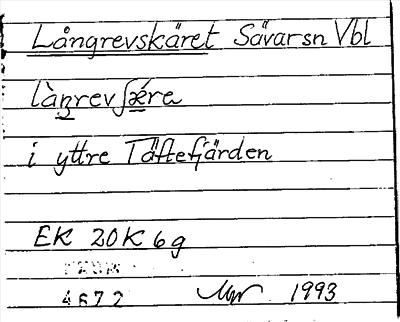 Långrevskäret Sävarsn Vbl
làŋrevʃǽre
i yttre Täftefjärden
EK 20K 6g
4672 1993